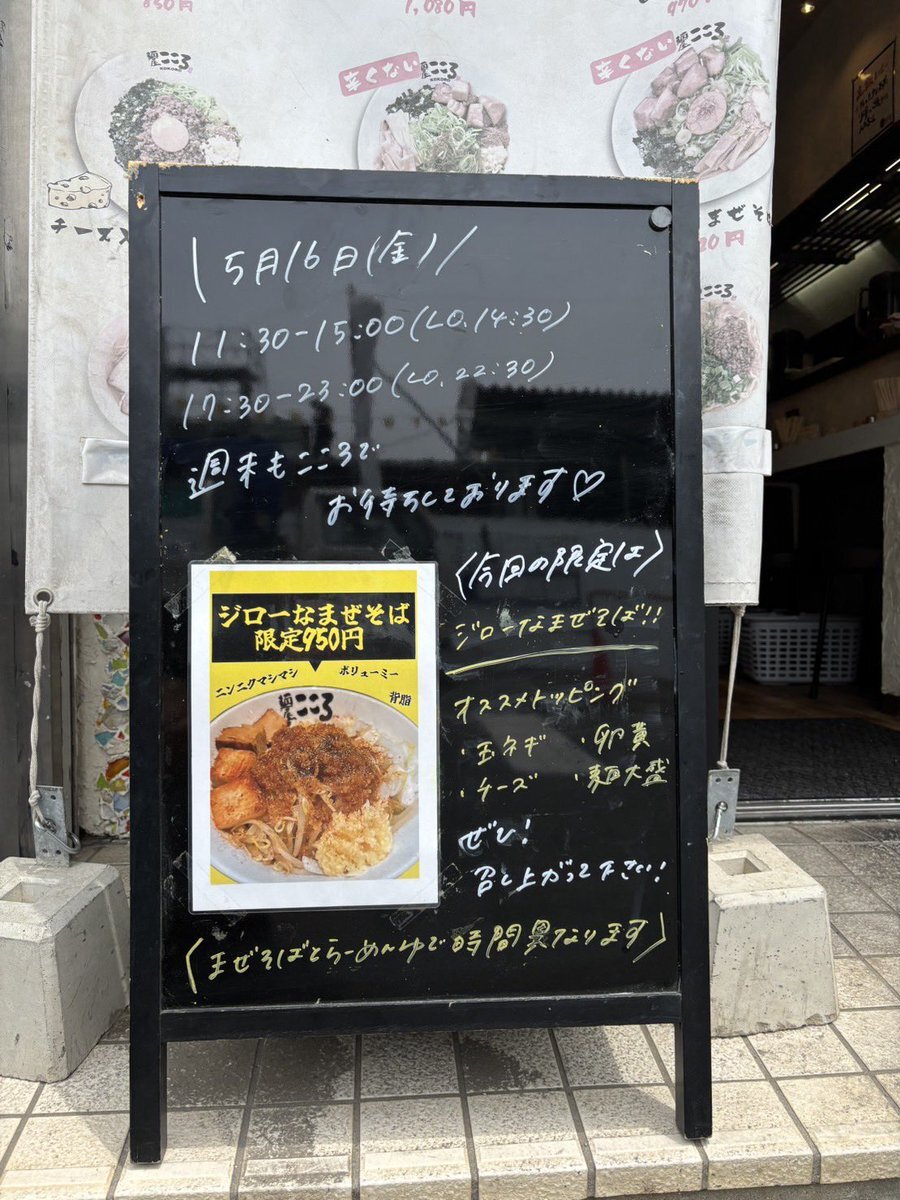 850円
1,080円
990円
麺屋こころ
KOKORO
辛くない
麺屋こころ
KOKORO
辛くない
麺屋こころ
KOKORO
チーズ
まぜそば
こころ
\ 5月16日(金) /
11:30-15:00(LO.14:30)
17:30-23:00(LO.22:30)
週末もこころで
お待ちしております♡
〈今回の限定は〉
ジローなまぜそば!!
オススメトッピング
・玉ネギ ・卵黄
・チーズ ・麺大盛
ぜひ!
召し上がって下さい!
ジローなまぜそば
限定950円
ニンニクマシマシ
ボリューミー
背脂
麺屋こころ
〈まぜそばとらーめんゆで時間異なります〉